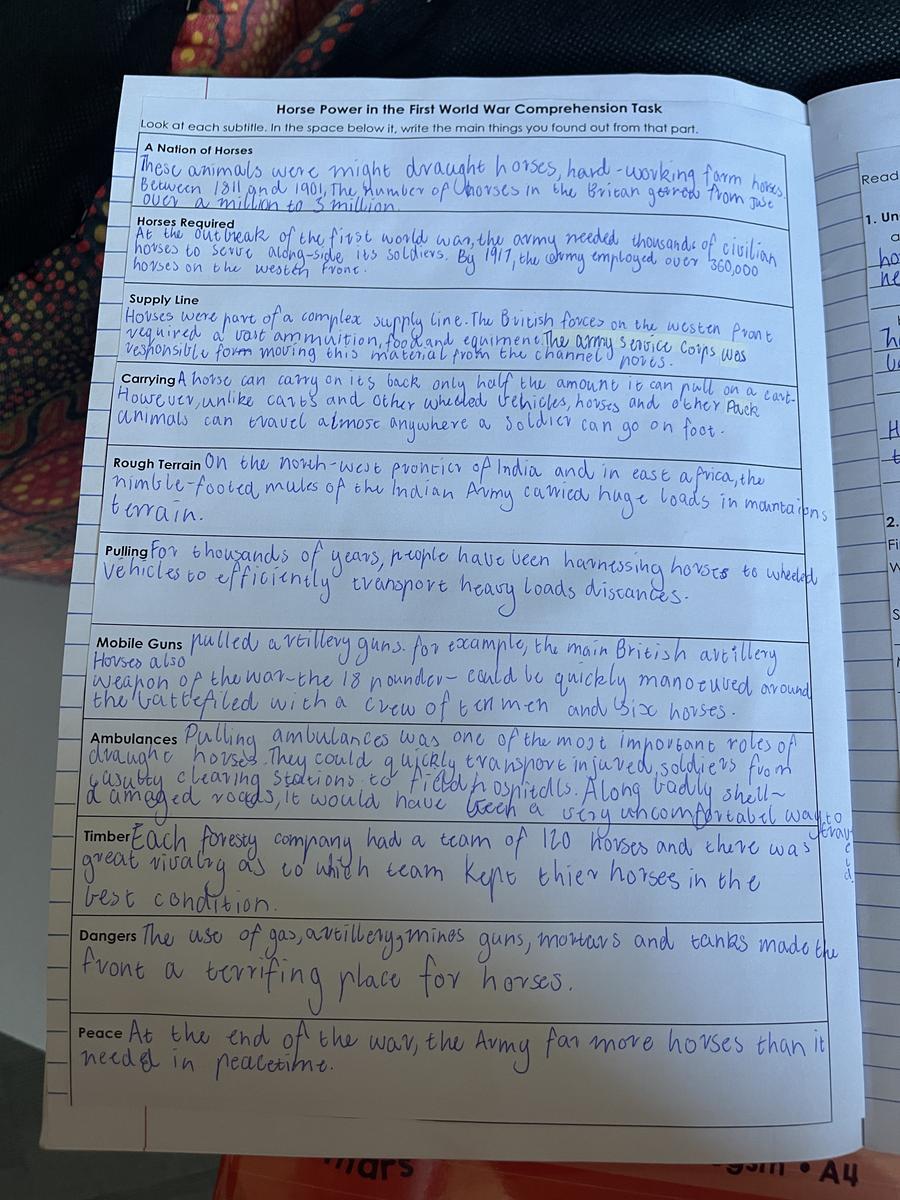 Horse Power in the First World War Comprehension Task
Look at each subtitle. In the space below it, write the main things you found out from that part.
A Nation of Horses
These animals were might draught horses, hard-working farm horses.
Between 1811 and 1901, The number of horses in the Britan from just
over a million to 3 million.
Horses Required
At the outbreak of the first world war, the army needed thousands of civilian
horses to serve along-side its soldiers. By 1917, the army employed over 360,000
horses on the westen front.
Supply Line
Horses were part of a complex supply line. The British forces on the westen front
required a vast ammuition, food and equiment. The army service corps was
responsible form moving this material from the channel ports.
Carrying A horse can carry on its back only half the amount it can pull on a cart.
However, unlike carts and other wheeled vehicles, horses and other Pack
animals can travel almost anywhere a soldier can go on foot.
Rough Terrain On the north-west fronticr of India and in east africa, the
nimble-footed mules of the Indian Army carried huge loads in mountaions
terrain.
Pulling For thousands of years, people have been harnessing horses to wheeled
vehicles to efficiently transport heavy loads distances.
Mobile Guns pulled artillery guns. for example, the main British artillery
Horses also
weapon of the war-the 18 pounder- could be quickly manoeuved around
the battefiled with a crew of ten men and six horses.
Ambulances Pulling ambulances was one of the most important roles of
draught horses. They could quickly transport injured soldiers from
casutty clearing stations to fieldhospitals. Along badly shell-
damaged roads, it would have been a very uncomfortabel way to
travel
Timber Each foresty company had a team of 120 horses and there was
great rivalry as to which team kept thier horses in the
best condition.
Dangers The use of gas, artillery, mines guns, mortars and tanks made the
front a terrifing place for horses.
Peace At the end of the war, the Army far more horses than it
needed in peacetime.
Read
1. Un
2.
Fi
W
S
mars
A4